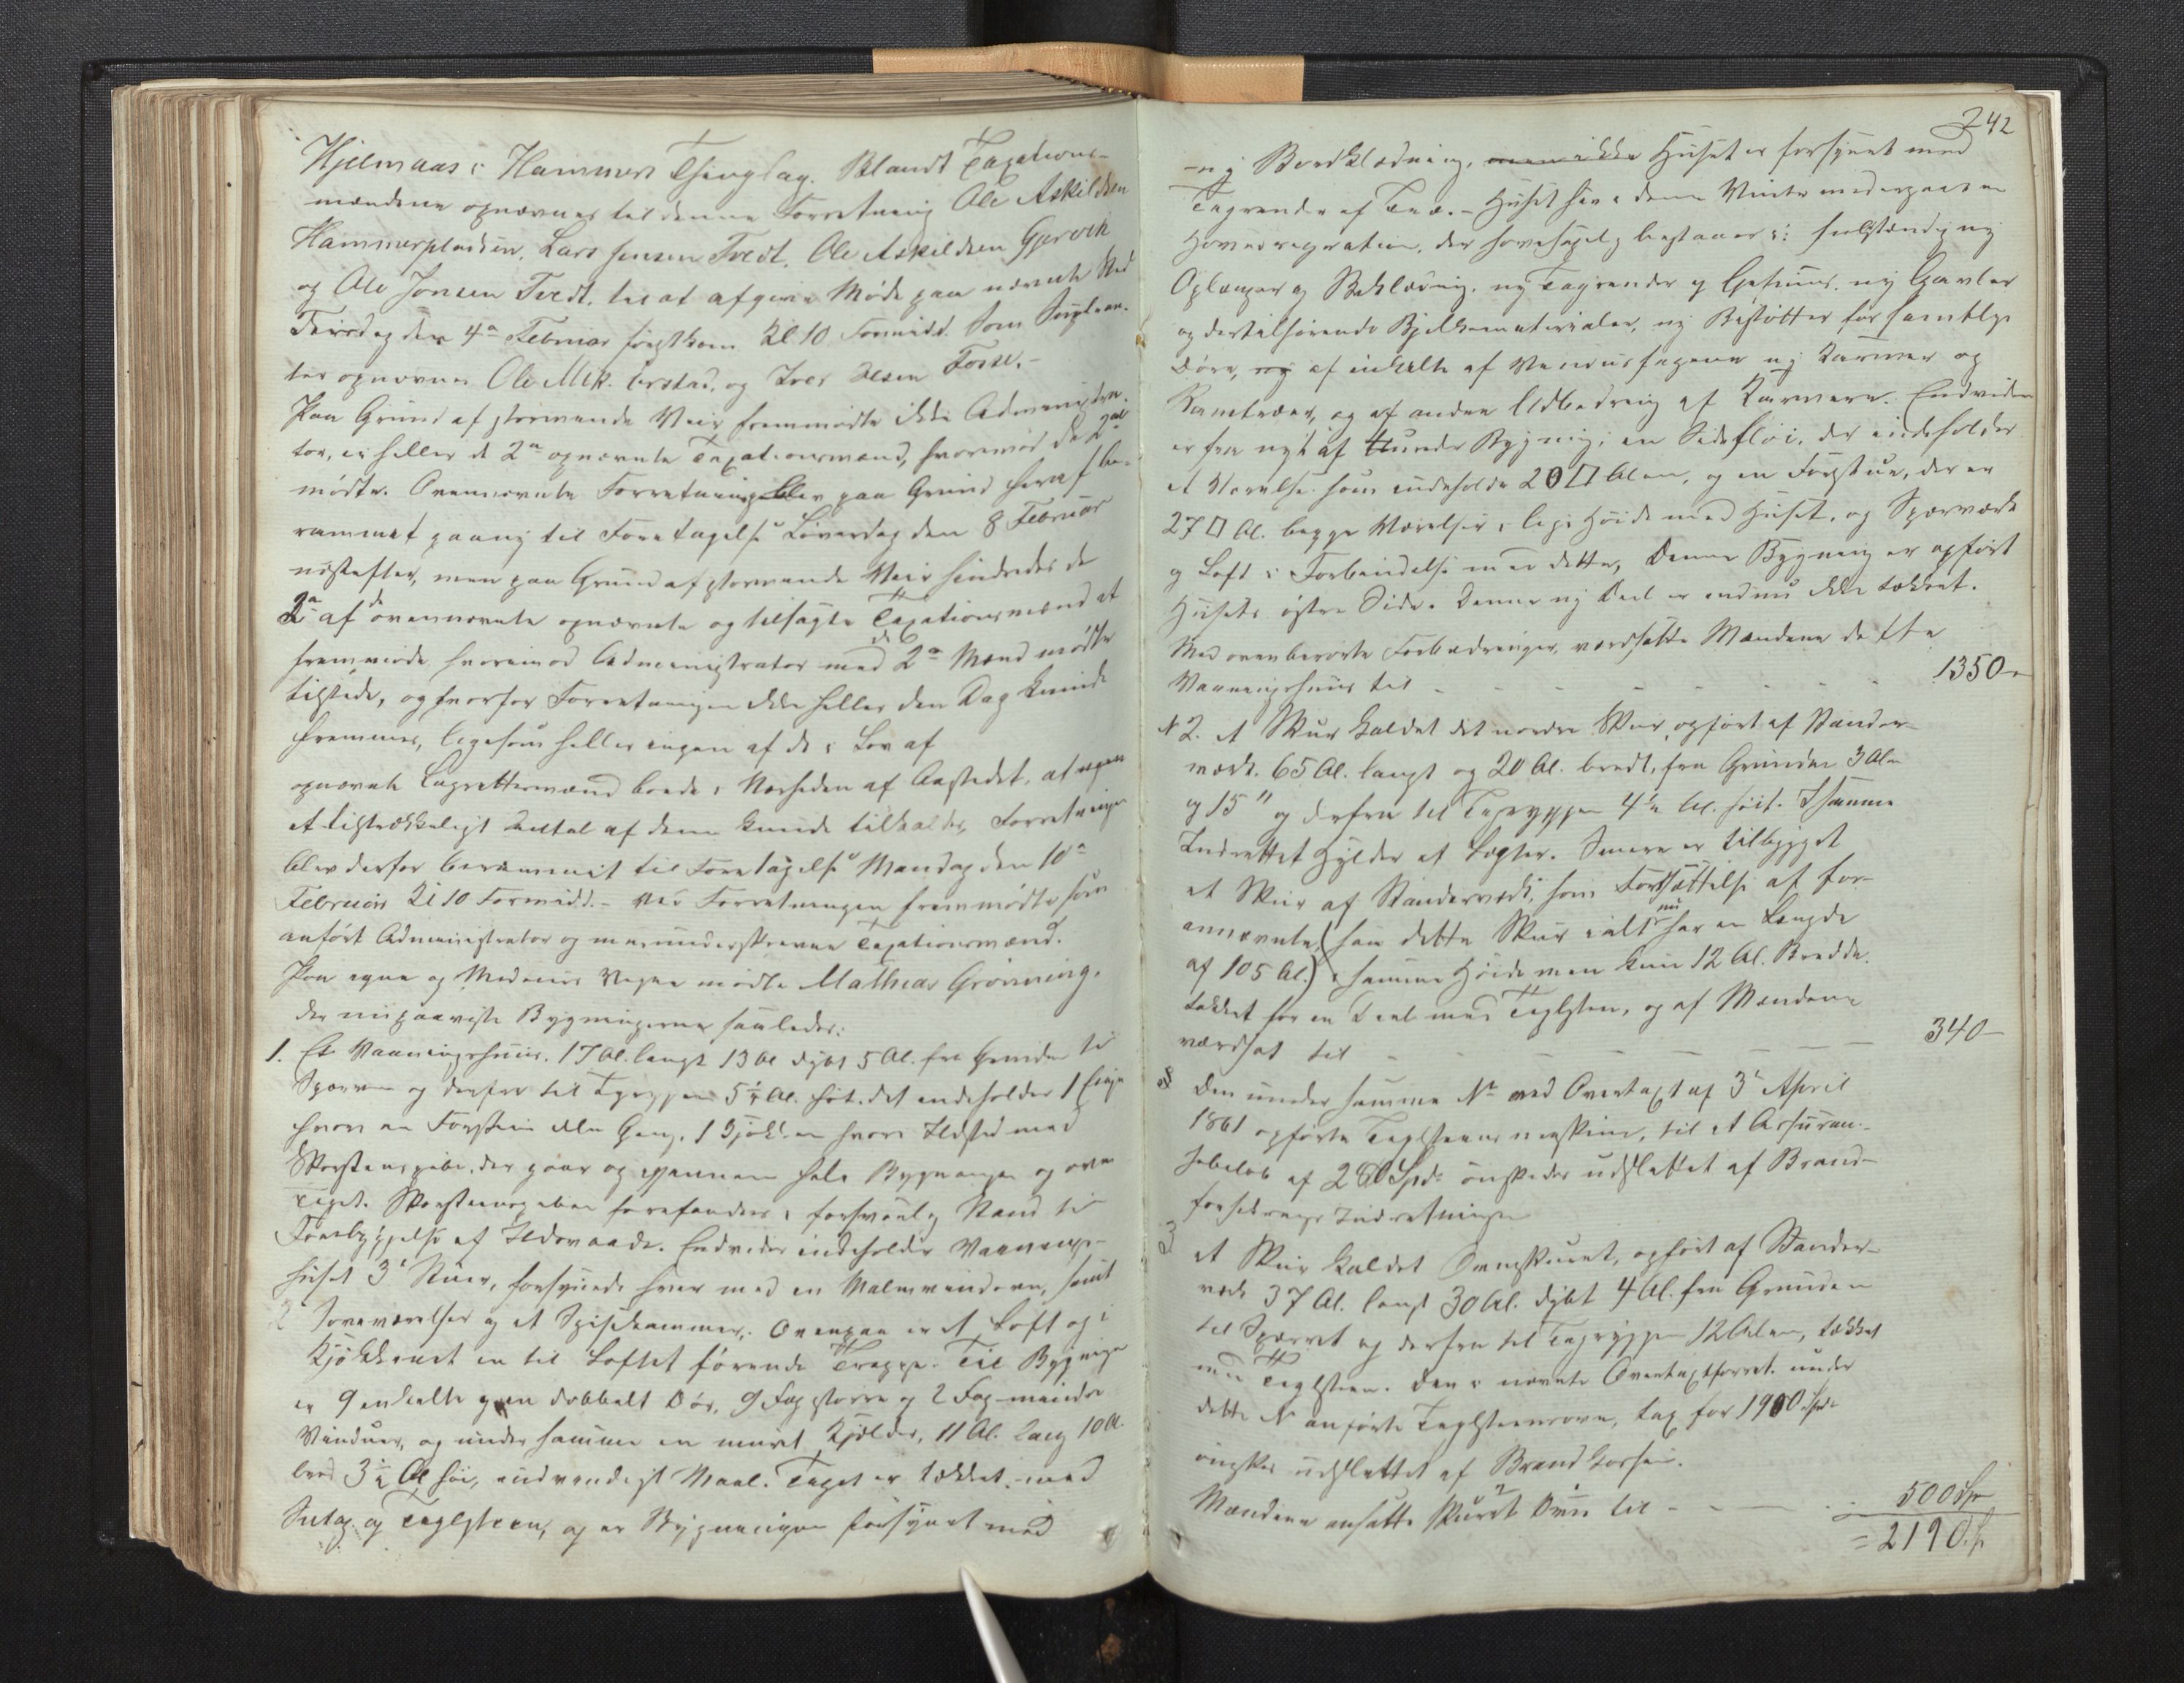 Hjelmaas i Hammers Thinglag. Blandt Taxations-
mændene opnævnes til denne Forretning Ole Askildsen
Hammerpladsen, Lars Jensen Tvedt, Ole Askildsen Gjervik
og Ole Jonsen Tvedt, til at afgive Møde paa nævnte Sted
Tirsdag den 4de Februarførstkom. Kl 10 Formidd. Som Supplean-
ter opnævnes Ole Mik. Erstad, og Iver Olsen Fosse.-
Paa Grund af stormende Veir fremmødte ikke Administra-
tor, ei heller de 2de opnævnte Taxationsmænd, hvorimod de 2de
mødte. Ovennævnte Forretning blev paa Grund heraf be-
rammet paany til Foretagelse Løverdag den 8 Februar
næstefter, men paa Grund af stormende Veir hindredes de
2de af de ovennævnte opnævnte og tilsagte Taxationsmænd at
fremmøde hvorimod Administrator med de 2de Mænd mødte
tilstede, og hvorfor Forretningen ikke heller den Dag kunde
fremmes, ligesom heller ingen af de i Lov af
opnævnte Lagrettesmænd boede i Nærheden af Aastedet, at
et tilstrækkeligt Antal af dem kunde tilkaldes. Forretningen
blev derfor berammet til Foretagelse Mandag den 10de
Februar Kl 10 Formidd.- Ved Forretningen fremmødte som
anført Administrator og medunderskrevne Taxationsmænd.
Paa egne og Medeiers Vegne mødte Mathias Grønning,
der nu paaviste Bygningerne saaledes:
1. Et Vaaningshuus, 17 Al. langt 13 Al dybt 5 Al. fra Grunden til
Sparren og derfra til Tagryggen 5¼ Al. høit. det indeholder 1 Etage
hvori en Forstue eller Gang, 1 Kjøkken hvori Ildsted med
Skorsteenspibe, der gaar op gjennem hele Bygningen og over
Taget. Skorsteenspiben forefandtes i forsvarlig Stand til
Forebyggelse af Ildsvaade. Endvidere indeholder Vaanings-
huset 3 Stuer, forsynede hver med en Malmvindovn, samt
2 Soveværelser og et Spisekammer. Ovenpaa er et Loft og i
Kjøkkenet en til Loftet førende Trappe. Til Bygningen
er 9 enkelte og en dobbelt Dør, 9 Fag større og 2 Fag mindre
Vinduer, og under samme en muret Kjelder, 11 Al. lang 10 Al.
bred 3½ Al høi, indvendigt Maal. Taget er tækket med
Sutag og Teglsteen, og er Bygningen forsynet med
242
-ny Bordklædning, men ikke Huset er forsynet med
Tagrender af Træ.- Huset har denne Vinter undergaaet en
Hovedreparation, der hovedsagelig bestaaer i: fuldstændig ny
Oplænger og Beklædning, ny Tagrender og Gesimser, ny Gavler
og dertilhørende Bjelkematerialer, ny Beslotter for samtlige
Døre, ny af enkelte af Vinduesfagene ny Karmer og
Ramtrær, og af anden Udbedring af Karmene. Endvidere
er fra nyt af Bygning; en Sidefløi, der indeholder
et Værelse som indeholder 20 □ Alen, og en Forstue, der er
27 □ Al. begge Værelser i lige Høide med Huset, og Sparværk
og Loft i Forbindelse med dette, Denne Bygning er opført
Husets østre Side. Denne ny Deel er endnu ikke tækket.
Med ovenberørte Forbedringer, værdsatte Mændene dette
Vaaningshuus til - - - - - - - 1350 -
N 2. et Skur kaldet det nordre Skur, opført af Stander-
værk. 65 Al. langt og 20 Al. bredt, fra Grunden 3 Alen
og 15" og derfra til Tagryggen 4½ Al. høit. I samme
Indrettet Hylder af Lægter. Senere er tilbygget
et Skur af Standerværk, som Fortsættelse af for-
annævnte, (saa dette Skur ialt nu har en Længde
af 105 Al.) i samme Høide men kun 12 Al. Bredde.
tækket for en Deel med Teglsteen, og af Mændene
værdsat til - - - - - - - 340 -
Den under samme No ved Overtaxt af 3 April
1861 opførte Teglsteensmaskine, til et Assuran-
cebeløb af 200 Spd. ønskedes udslettet af Brand-
forsikrings Indretningen
3
et Skur kaldet Ovnskuret, opført af Stander-
værk 37 Al. langt 30 Al. dybt 4 Al. fra Grunden
til Sparret og derfra til Tagryggen 12 Alen, tækket
med Teglsteen. Den i nævnte Overtaxtforret. under
dette No anførte Teglsteensovn, tax for 1900 Spd.
ønskes udslettet af Brandkassen.
Mændene ansatte Skuret Ovn til - - - 500 Sp
= 2190 Sp.